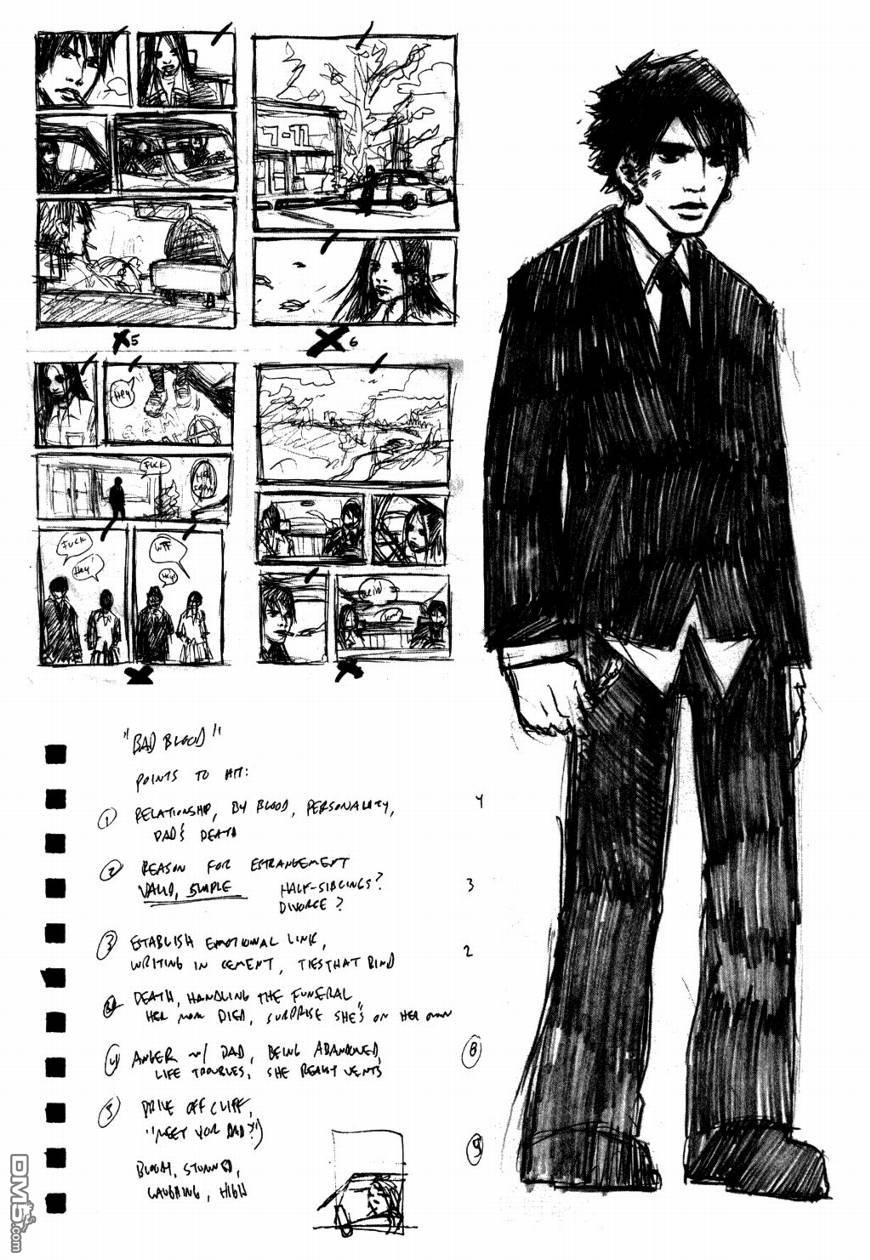 7-11
5
6
Hey
FUCK
FUCK
Hey!
WTF
Hey!
"BAD BLOOD"
POINTS TO HIT:
1 RELATIONSHIP, BY BLOOD, PERSONALITY, 4
DAD'S DEATH
2 REASON FOR ESTRANGEMENT
VALID, SIMPLE HALF-SIBLINGS? 3
DIVORCE?
3 ESTABLISH EMOTIONAL LINK, 2
WRITING IN CEMENT, TIES THAT BIND
DEATH, HANDLING THE FUNERAL
HER MOM DIED, SURPRISE SHE'S ON HER OWN
4 ANGER w/ DAD, BEING ABANDONED, 8
LIFE TROUBLES, SHE REALLY VENTS
5 DRIVE OFF CLIFF,
"MEET YOUR DAD?" 9
BLOODY, STUNNED,
LAUGHING, HIGH
DM5.com